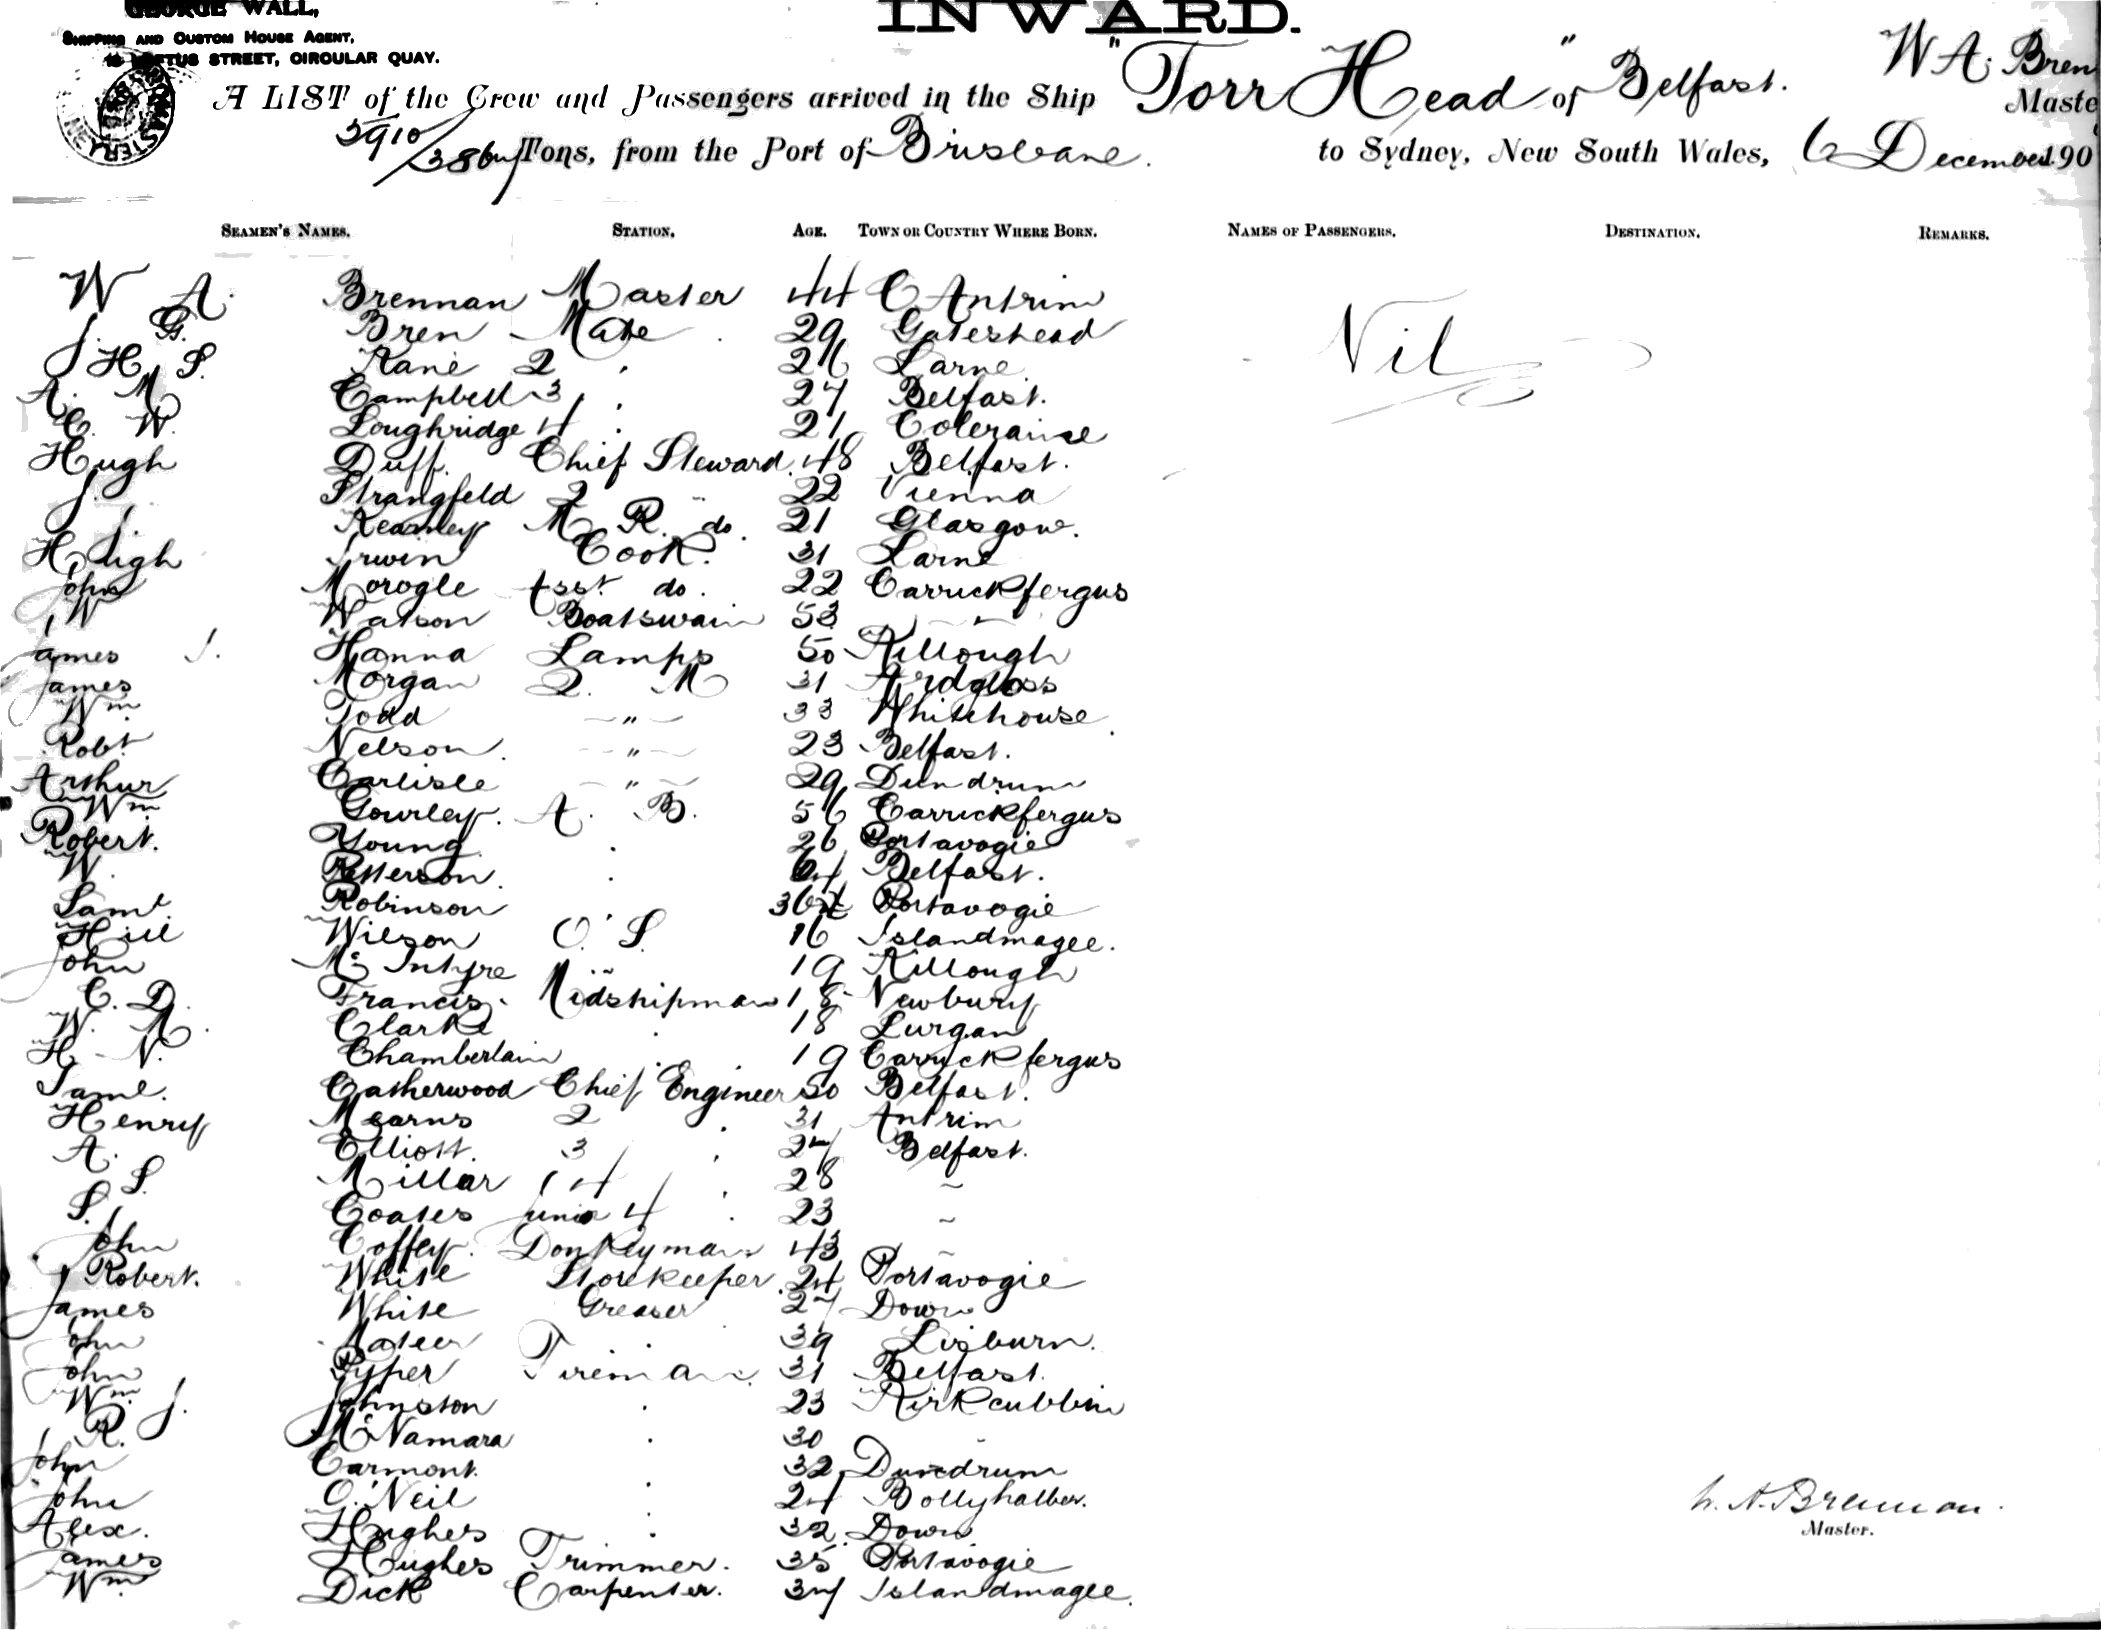 GEORGE WALL,
INWARD.
SHIPPING AND CUSTOM HOUSE AGENT,
STREET, CIRCULAR QUAY.
A LIST of the Crew and Passengers arrived in the Ship "Torr Head" of Belfast. W A. Bren
Maste
5910/ Tons, from the Port of Brisbane. to Sydney, New South Wales, 6 December 190
SEAMEN'S NAMES. STATION. AGE. TOWN OR COUNTRY WHERE BORN. NAMES OF PASSENGERS. DESTINATION. REMARKS.
W A. Brennan Master 44 C Antrim
J. G. Bren Mate 29 Gateshead
H. S. Kane 2 " 26 Larne Nil
A. M Campbell 3 " 27 Belfast.
C. W. Loughridge 4 " 21 Coleraine
Hugh Duff. Chief Steward. 48 Belfast.
J. Strangfeld 2 " 22 Vienna
J. Kearney M. R. do. 21 Glasgow.
Hugh Irwin Cook. 31 Larne
John Morogle Asst do. 22 Carrickfergus
W Watson Boatswain 53 "
James J. Hanna Lamps 50 Killough
James Morgan Q. M 31 Ardglass
Wm Todd " 33 Whitehouse
Robt Nelson. " 23 Belfast.
Arthur Carlisle " 29 Dundrum
Wm Gourley. A. B. 56 Carrickfergus
Robert. Young " 26 Portavogie
W. Petterson. " 64 Belfast.
Saml Robinson 36 Portavogie
Hill Wilson O. S. 16 Islandmagee.
John McIntyre " 19 Killough
C. D. Francis. Midshipman 18 Newbury
W. M. Clarke " 18 Lurgan
H. N. Chamberlain " 19 Carrickfergus
Saml. Catherwood Chief Engineer 50 Belfast.
Henry Mearns 2 " 31 Antrim
A. Elliott. 3 " 27 Belfast.
S. Millar 4 " 28 "
S. Coates Junior 4 " 23 "
John Coffey. Donkeyman 43 "
Robert. White Storekeeper. 24 Portavogie
James White Greaser 27 Down
John Mateer " 39 Lisburn.
John Pyper Fireman. 31 Belfast.
Wm J. Johnston " 23 Kirkcubbin
R. McNamara " 30 "
John Carmont. " 32 Dundrum
John O'Neil " 24 Ballyhalbert.
W. A. Brennan.
Alex. Hughes " 32 Down
Master.
James Hughes Trimmer. 35 Portavogie
Wm Dick Carpenter. 37 Islandmagee.